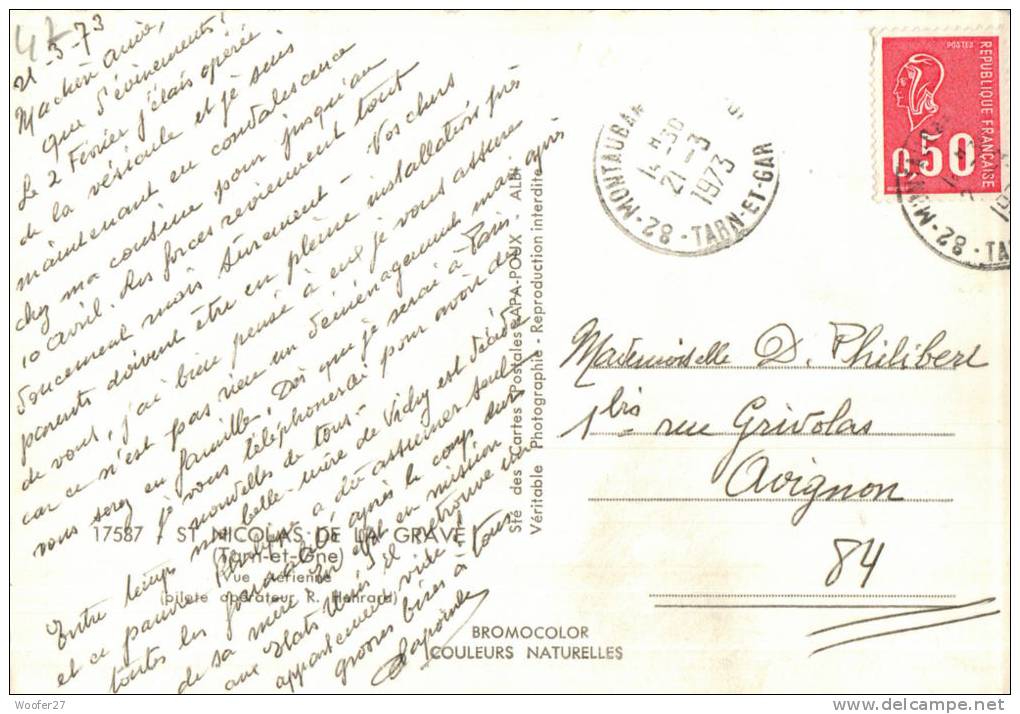 47
21-3-73
Ma chère amie,
que d'évènements!
Le 2 Février j'étais opérée
de la vésicule et je suis
maintenant en convalescence
chez ma cousine pour jusqu'au
10 avril. Les forces reviennent tout
doucement mais sûrement - Vos chers
parents doivent être en pleine installation près
de vous, j'ai bien pensé à eux je vous assure
car ce n'est pas rien un déménagement mais ainsi
vous serez en famille. Dès que je serai à Paris
je vous téléphonerai pour avoir des
nouvelles de tous -
Entre temps ma belle-mère de Vichy est décédée
et ce pauvre Philippe a dû assumer seul
toutes les formalités après le corps
de sa mère en mission
aux Etats Unis il retrouve un
appartement vide!
grosses bises à tous
17587 - ST NICOLAS DE LA GRAVE
(Tarn-et-Gne)
Vue aérienne
(pilote opérateur R. Henrard)
BROMOCOLOR
COULEURS NATURELLES
Sté des Cartes Postales APA-POUX - ALBI
Véritable Photographie - Reproduction interdite
82 - MONTAUBAN
14 H30
21-3
1973
TARN-ET-GAR
POSTES
REPUBLIQUE FRANÇAISE
0,50
82 - MON
TA
Mademoiselle D. Philibert
1 bis rue Grivolas
Avignon
84
Woofer27
delcampe.net